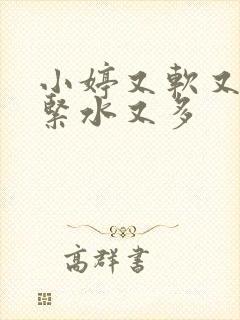 小婷又軟又
緊水又多
高群書